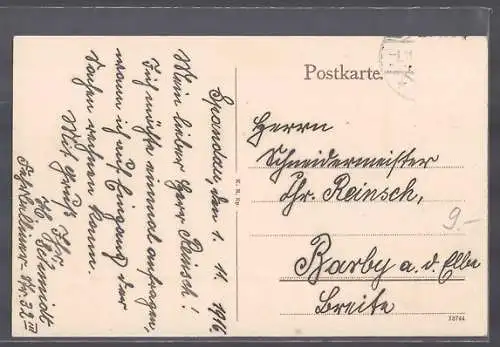 Spandau, den 1. 11. 1916.
Mein lieber Herr Reinsch!
Ich möchte einmal anfragen,
wann ich auf Eingang der
Sachen rechnen kann.
Mit Gruß Ihr
H. Schmidt
Str. 22 III
Postkarte
Herrn
Schneidermeister
Chr. Reinsch,
Barby a. d. Elbe
Breite
9.-
38744